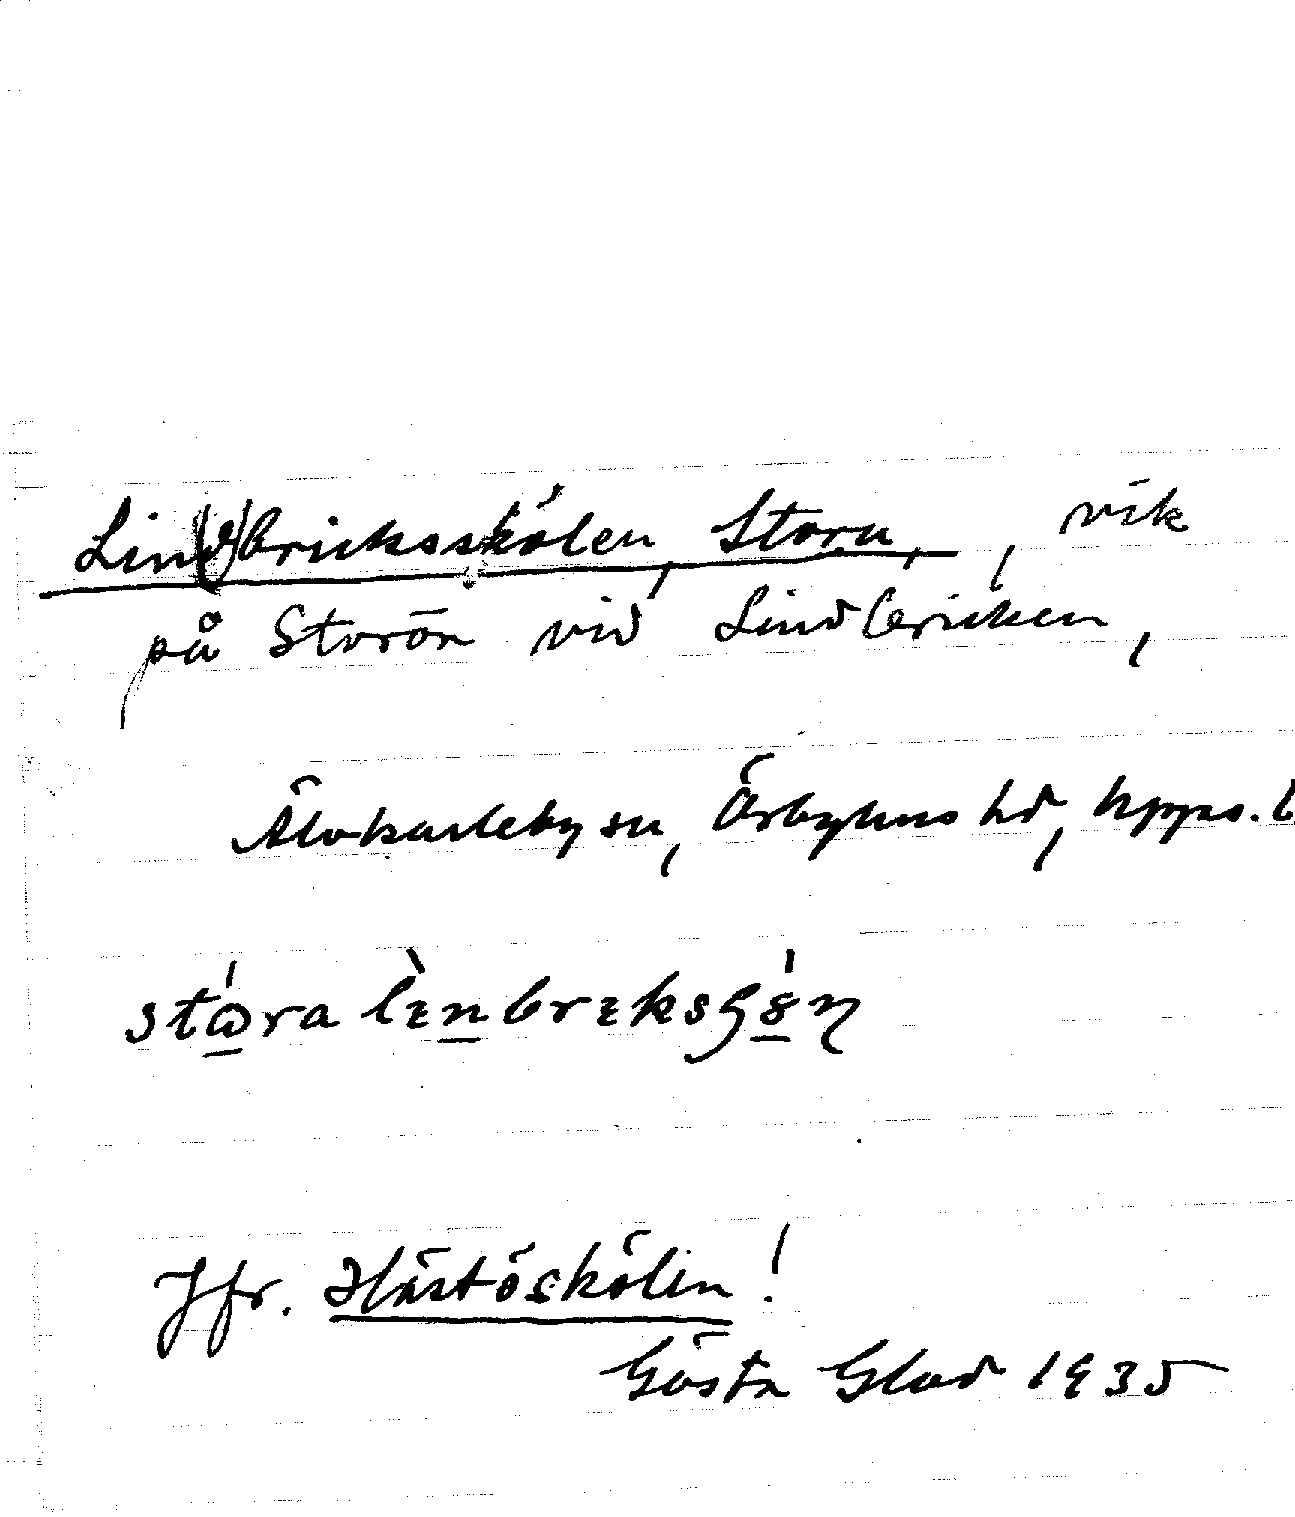 Lin(d)bricksskölen, Stora, , vik
på Storön vid Lindbricken,
Älvkarleby sn, Örbyhus hd, Upps. l
Jfr. Hästöskölen!
Gösta Glad 1935